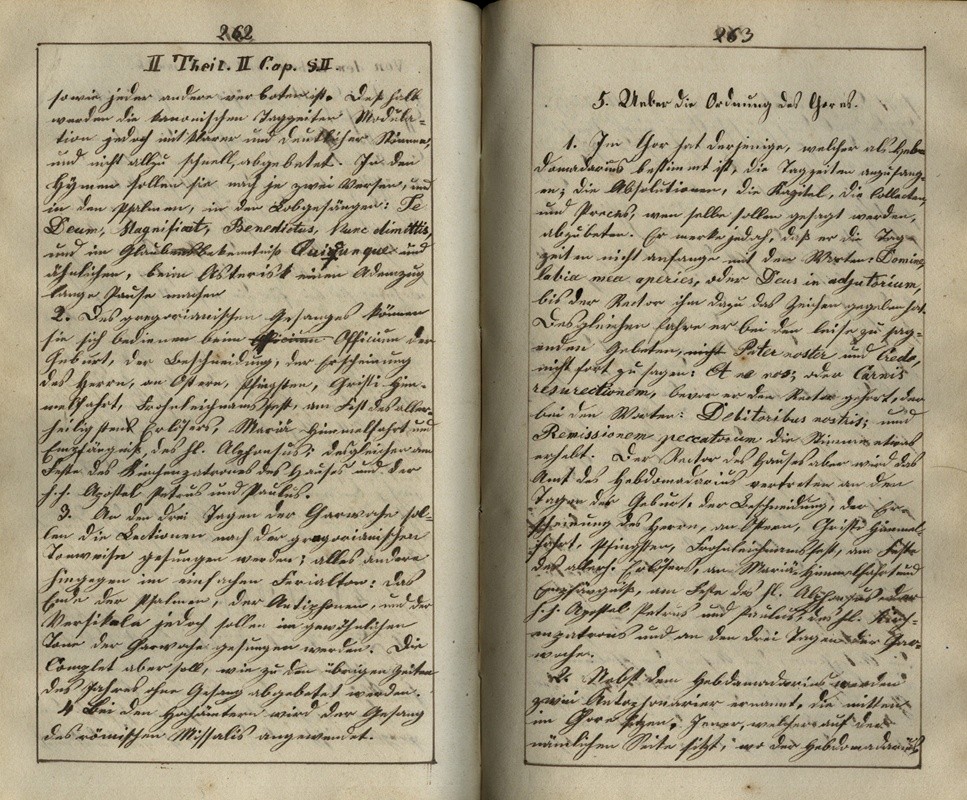 262
II Theil. II Cap. §II.
sowie jeder andere verboten ist. Deßhalb
werden die kanonischen Tagzeiten Modula-
tion jedoch mit klarer und deutlicher Stimme,
und nicht allzu schnell, abgebetet. In den
Hymnen sollen sie nach je zwei Versen, und
in den Psalmen, in den Lobgesängen: Te
Deum, Magnificat, Benedictus, Nunc dimittis,
und im Glaubensbekentniß Quicunque und
ähnlichen, beim Asterisk einen Athemzug
lange Pause machen
2. Des gregorianischen Gesanges können
sie sich bedienen beim Officium der
Geburt, der Beschneidung, der Erscheinung
des Herrn, an Ostern, Pfingsten, Christi Him-
melfahrt, Frohnleichnamsfest, am Fest des aller-
heiligsten Erlösers, Mariä Himmelfahrt und
Empfängniß, des hl. Alphonsus; desgleichen am
Feste des Kirchenpatrones des Hauses und der
h.h. Apostel Petrus und Paulus.
3. An den drei Tagen der Charwoche sol-
len die Lectionen nach der gregorianischen
Tonweise gesungen werden; alles andere
hingegen im einfachen Ferialton: das
Ende der Psalmen, der Antiphonen, und der
Versikeln jedoch sollen im gewöhnlichen
Tone der Charwoche gesungen werden. Die
Complet aber soll, wie zu den übrigen Zeiten
des Jahres ohne Gesang abgebetet werden.
4 Bei den Hochämtern wird der Gesang
des römischen Missalis angewendet.
263
5. Ueber die Ordnung des Chores.
1. Im Chor hat derjenige, welcher als Heb-
domadarius bestimmt ist, die Tagzeiten anzufang-
en; die Absolutionen, die Kapitel, die Collecten,
und Preces, wen selbe sollen gesagt werden,
abzubeten. Er merke jedoch, daß er die Tag-
zeiten nicht anfange mit den Worten: Domine
labia mea aperies, oder Deus in adjutorium,
bis der Rector ihm dazu das Zeichen gegeben hat.
Desgleichen fahre er bei den leise zu sag-
enden Gebeten, nicht Pater noster und Credo,
nicht fort zu sagen: Et ne nos; oder Carnis
resurectionem, bevor er den Rector gehört, der
bei den Worten: Debitoribus nostris; und
Remissionem peccatorum die Stimme etwas
erhebt. Der Rector des Hauses aber wird das
Amt des Hebdomadarius vertreten an den
Tagen der Geburt, der Beschneidung, der Er-
scheinung des Herrn, an Ostern, Christi Himmel-
fahrt, Pfingsten, Frohnleichnamsfest, am Feste
des allerh. Erlösers, an Mariä Himmelfahrt und
Empfängniß, am Feste des hl. Alphonsus, der
h.h. Apostel Petrus und Paulus, des hl. Kirch-
enpatrons und an den drei Tagen der Char-
woche.
2. Nebst dem Hebdomadarius werden
zwei Antiphonarier ernannt, die mitten
im Chore sitzen. Jener, welcher auf der
nämlichen Seite sitzt, wo der Hebdomadarius